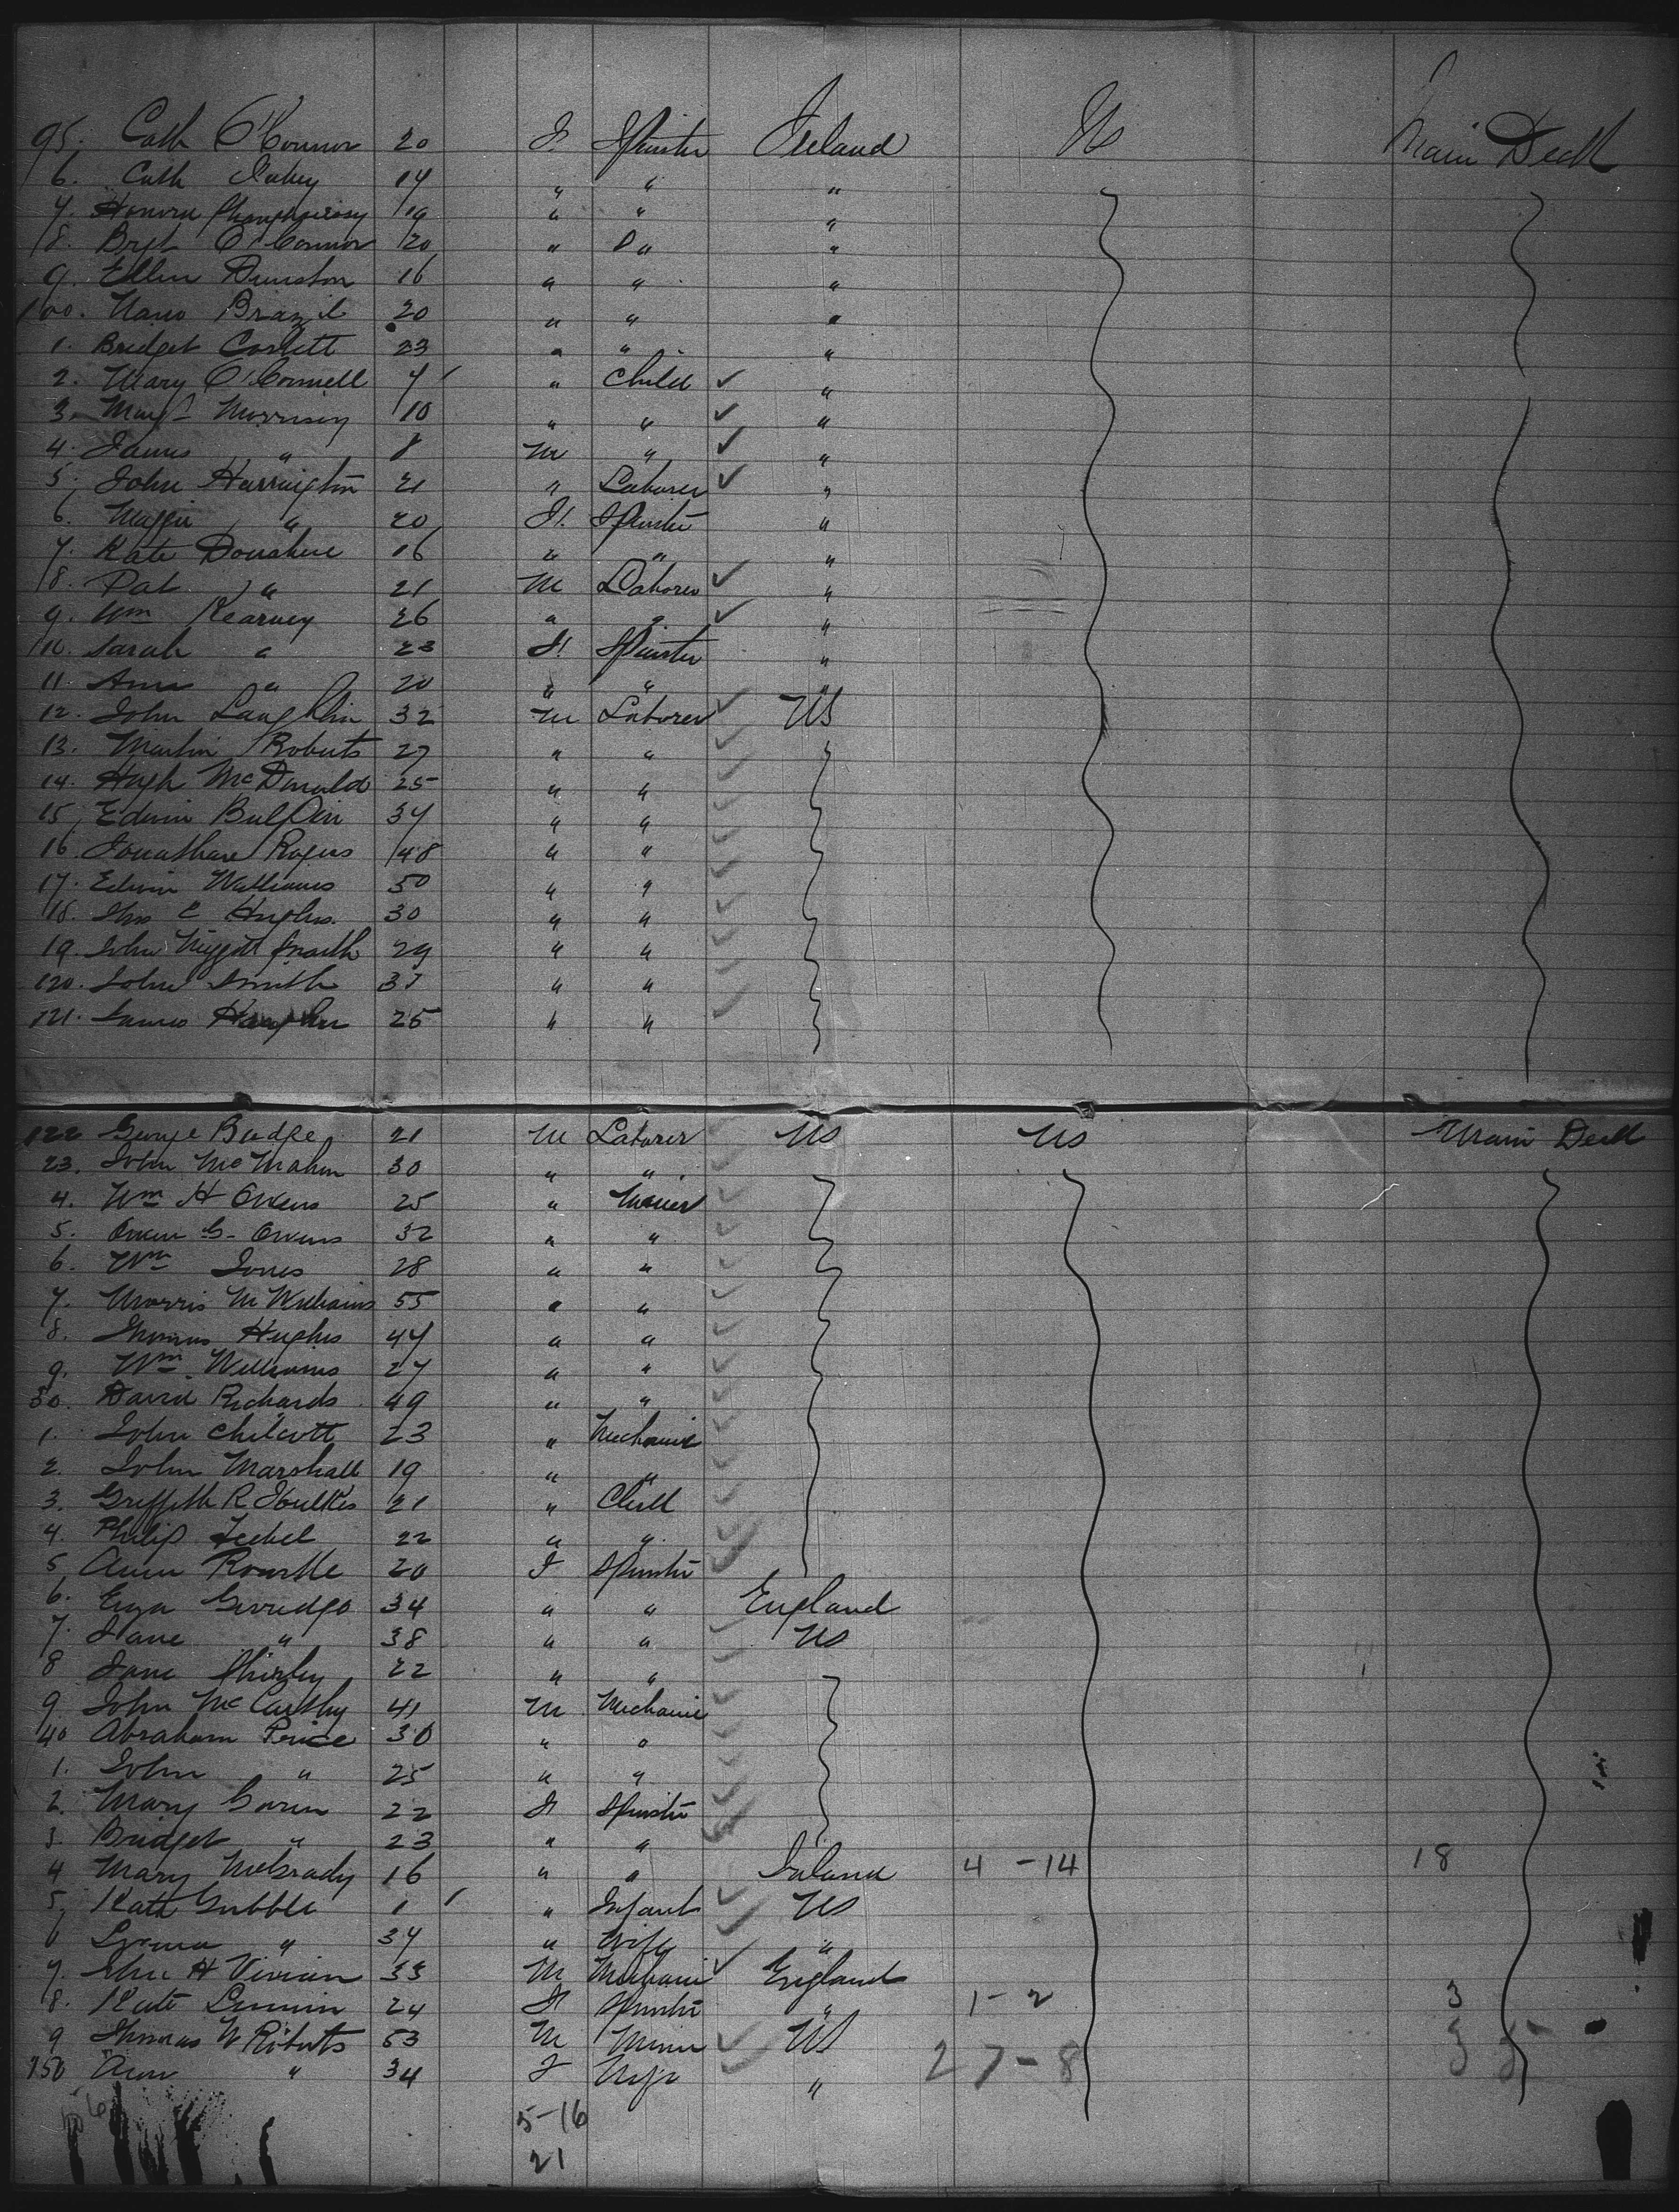 95. Cath O'Connor 20 F Spinster Ireland US Main Deck
6. Cath 14 " " "
7. Honora 19 " " "
8. Brgt O'Connor 20 " Do " "
9. Ellen Dunston 16 " " "
100. Nano Brazil 20 " " "
1. Bridget Corbett 23 " " "
2. Mary O'Connell 4 " Child "
3. Margt Morrisey 10 " " "
4. James " 8 M " "
5. John Harrington 21 " Laborer "
6. Maggie " 20 F. Spinster "
7. Kate Donahue 16 " " "
8. Pat " 21 M Laborer "
9. Wm Kearney 26 " " "
10. Sarah " 23 F. Spinster "
11. Ann " 20 " " "
12. John Laughlin 32 M Laborer US
13. Martin Roberts 27 " "
14. Hugh McDonald 25 " "
15. Edwin 34 " "
16. Jonathan Rogers 48 " "
17. Edwin Williams 50 " "
18. Thos E Hughes. 30 " "
19. John Smith 29 " "
120. John Smith " "
121. James 25 " "
122 George Budge 21 M Laborer US US Main Deck
23. John McMahon 30 " "
4. Wm H Owens 25 " Miner
5. Owen G. Owens 32 " "
6. Wm Jones 28 " "
7. Morris M Williams 55 " "
8. Thomas Hughes 44 " "
9. Wm Williams 27 " "
30. David Richards 49 " "
1. John Chilcott 23 " Mechanic
2. John Marshall 19 " "
3. Griffith R Foulkes 21 " Clerk
4. Philip 22 " "
5 Ann Rourke 20 F Spinster
6. Eliza 34 " " England
7. Jane " 38 " " US
8 Jane Shirley 22 " "
9 John McCarthy 41 M Mechanic
40 Abraham Price 30 " "
1. John " 25 " "
2. Mary 22 F Spinster
3. Bridget " 23 " "
4 Mary McGrady 16 " " Ireland 4 - 14 18
5. Kate Gubble 1 " Infant US
6 " 34 " Wife "
7. John H Vivian 33 M Mechanic England
8. Kate 24 F Spinster " 1 - 2 3
9 Thomas W Roberts 53 M Miner US
150 Ann " 34 F Wife " 27 - 8
5-16
21